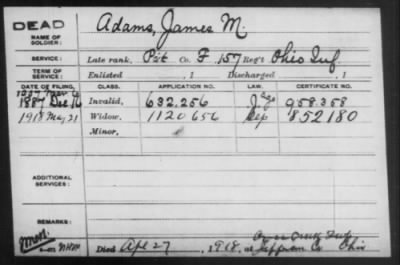 DEAD
NAME OF SOLDIER:
Adams, James M.
SERVICE:
Late rank, Pvt Co. F. 157 Reg't Ohio Inf.
TERM OF SERVICE:
Enlisted , 1 Discharged , 1
DATE OF FILING. CLASS. APPLICATION NO. LAW. CERTIFICATE NO.
1887 Dec Invalid, 632.256 958.358
1918 May 21 Widow, 1120656 Sep 852180
Minor,
ADDITIONAL SERVICES:
REMARKS:
Died Apl 27, 1918, at Jefferson Co Ohio